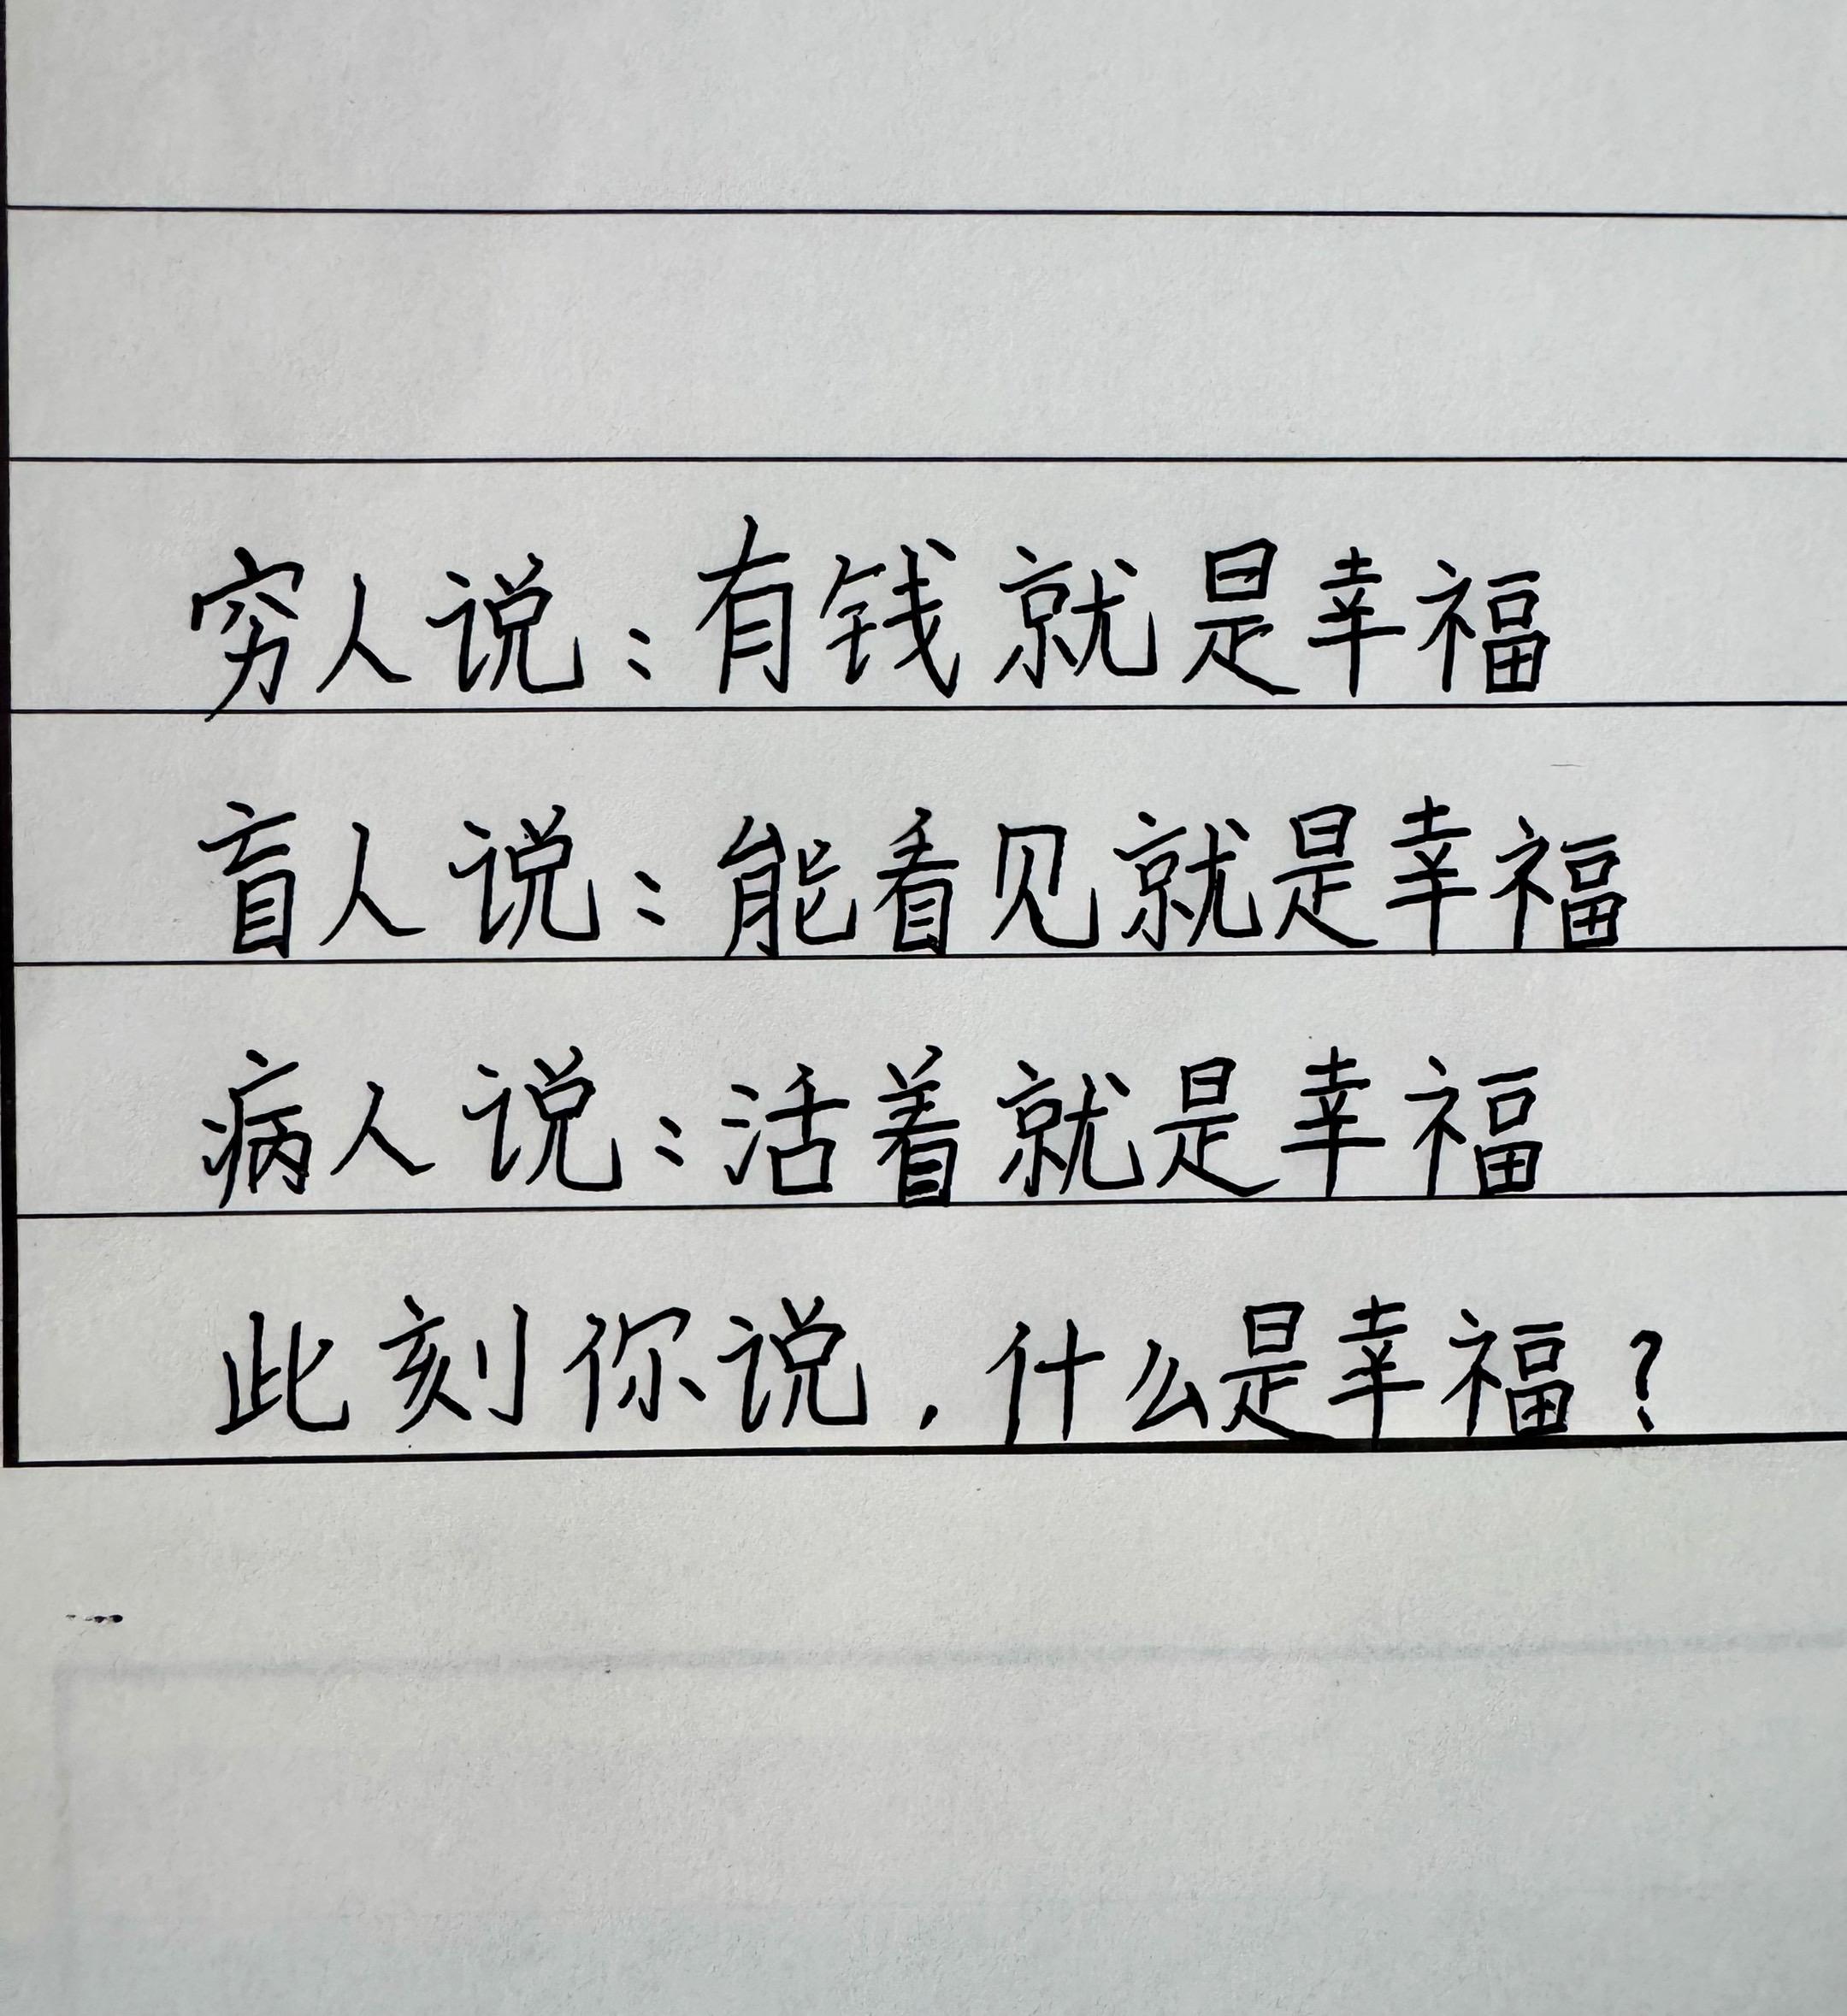 穷人说：有钱就是幸福
盲人说：能看见就是幸福
病人说：活着就是幸福
此刻你说，什么是幸福？